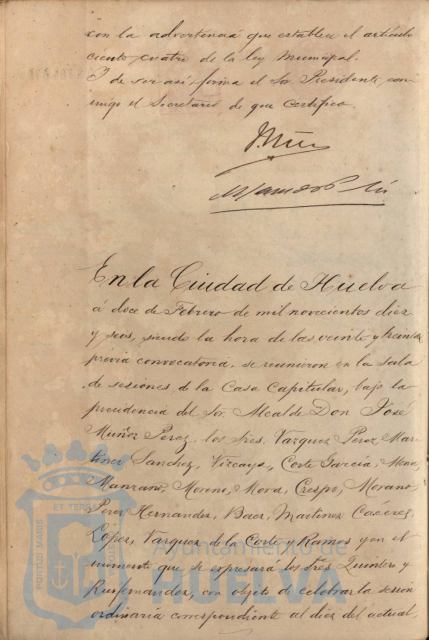 con la advertencia que establece el artículo
ciento cuatro de la ley Municipal.
Y de ser así, firma el Sr. Presidente con-
migo el Secretario de que certifico.
En la Ciudad de Huelva
á doce de Febrero de mil novecientos diez
y seis, siendo la hora de las veinte y treinta
previa convocatoria, se reunieron en la sala
de sesiones de la Casa Capitular, bajo la
presidencia del Sr. Alcalde Don José
Muñoz Perez, los Sres. Vazquez Perez, Mar-
tinez Sanchez, Vizcaya, Corte García, Mena,
Manzano, Moreno, Mora, Crespo, Morano,
Perez Hernandez, Baez, Martinez Cáceres,
Lopez, Vazquez de la Corte y Ramos y en el
momento que se expresará los Sres Quintero y
con objeto de celebrar la sesion
ordinaria correspondiente al diez del actual,
Ayuntamiento de
HUELVA
PORTUS MARIS
ET TERRAE